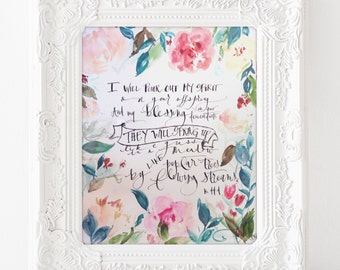 I WILL POUR OUT MY SPIRIT
on your offspring
And my blessing on your
THEY WILL SPRING UP
like grass
in a meadow
LIKE poplar trees
by flowing streams